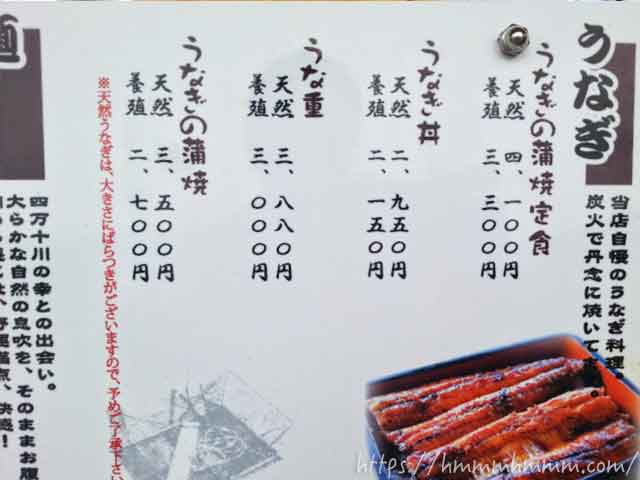 うなぎ
当店自慢のうなぎ料理
炭火で丹念に焼いて
うなぎの蒲焼定食
天然 四、一〇〇円
養殖 三、三〇〇円
うなぎ丼
天然 二、九五〇円
養殖 二、一五〇円
うな重
天然 三、八八〇円
養殖 三、〇〇〇円
うなぎの蒲焼
天然 三、五〇〇円
養殖 二、七〇〇円
※天然うなぎは、大きさにばらつきがございますので、予めご了承下さい
四万十川の幸との出会い。
大らかな自然の息吹を、そのままお腹
https://hmmmhmmm.com/